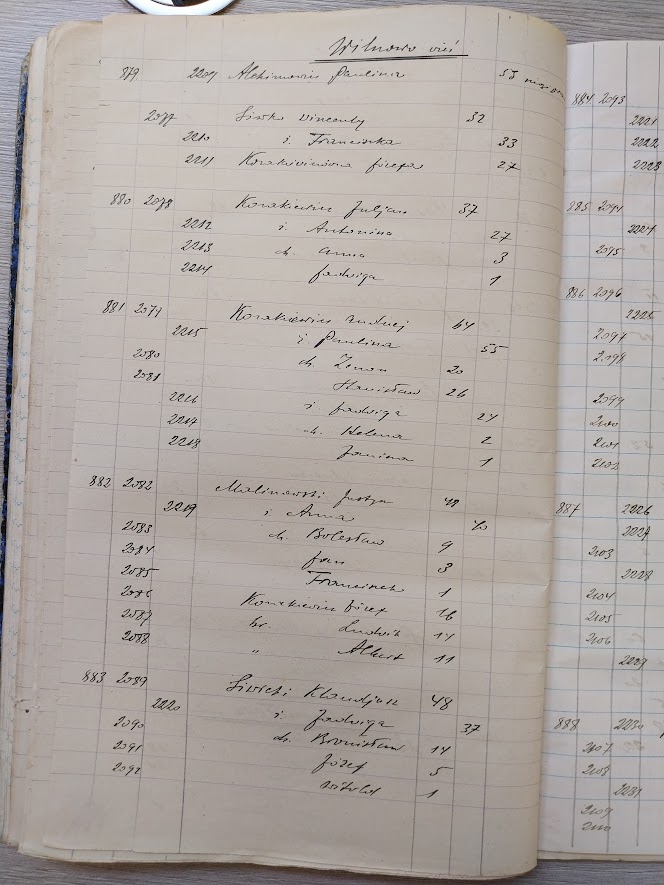 Wilnowo wieś
879 2209 Alchimowicz Paulina 55
2077 Siwko Wincenty 32
2210 ż. Franciszka 33
2211 Korakiewiczówna Józefa 27
880 2078 Korakiewicz Juljan 37
2212 ż. Antonina 27
2213 dz. Anna 3
2214 Jadwiga 1
881 2079 Korakiewicz Andrzej 64
2215 ż. Paulina 55
2080 dz. Zenon 20
2081 Stanisław 26
2216 ż. Jadwiga 24
2217 dz. Helena 2
2218 Janina 1
882 2082 Malinowski Justyn 48
2219 ż. Anna 40
2083 dz. Bolesław 9
2084 Jan 3
2085 Franciszek 1
2086 Korakiewicz Józef 16
2087 br. Ludwik 14
2088 " Albert 11
883 2089 Siwicki Klaudjusz 48
2220 ż. Jadwiga 37
2090 dz. Bronisław 14
2091 Józef 5
2092 Witold 1
884 2093
2221
2222
2223
885 2094
2224
2095
886 2096
2225
2097
2098
2099
2100
2101
2102
887 2226
2227
2103
2228
2104
2105
2106
2229
888 2230
2107
2108
2231
2109
2110